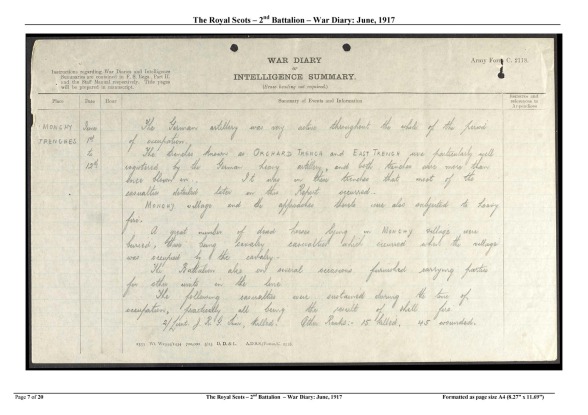 The Royal Scots – 2nd Battalion – War Diary: June, 1917
WAR DIARY
or
INTELLIGENCE SUMMARY.
(Erase heading not required.)
Army Form C. 2118.
Instructions regarding War Diaries and Intelligence
Summaries are contained in F. S. Regs., Part II.
and the Staff Manual respectively. Title pages
will be prepared in manuscript.
Place Date Hour Summary of Events and Information Remarks and
references to
Appendices
MONCHY TRENCHES
June 1st to 12th
The German artillery was very active throughout the whole of the period
of occupation.
The trenches known as ORCHARD TRENCH and EAST TRENCH were particularly well
registered by the German heavy artillery, and both trenches were more than
once blown in. It was in these trenches that most of the
casualties detailed later in this Report occurred.
MONCHY village and the approaches thereto were also subjected to heavy
fire.
A great number of dead horses lying in MONCHY village were
buried, these being cavalry casualties which occurred when the village
was occupied by the cavalry.
The Battalion also on several occasions furnished carrying parties
for other units in the line.
The following casualties were sustained during the time of
occupation, practically all being the result of shell fire
2/Lieut. J. R. killed. Other Ranks:- 15 killed, 45 wounded.
Page 7 of 20
The Royal Scots – 2nd Battalion – War Diary: June, 1917
Formatted as page size A4 (8.27" x 11.69")